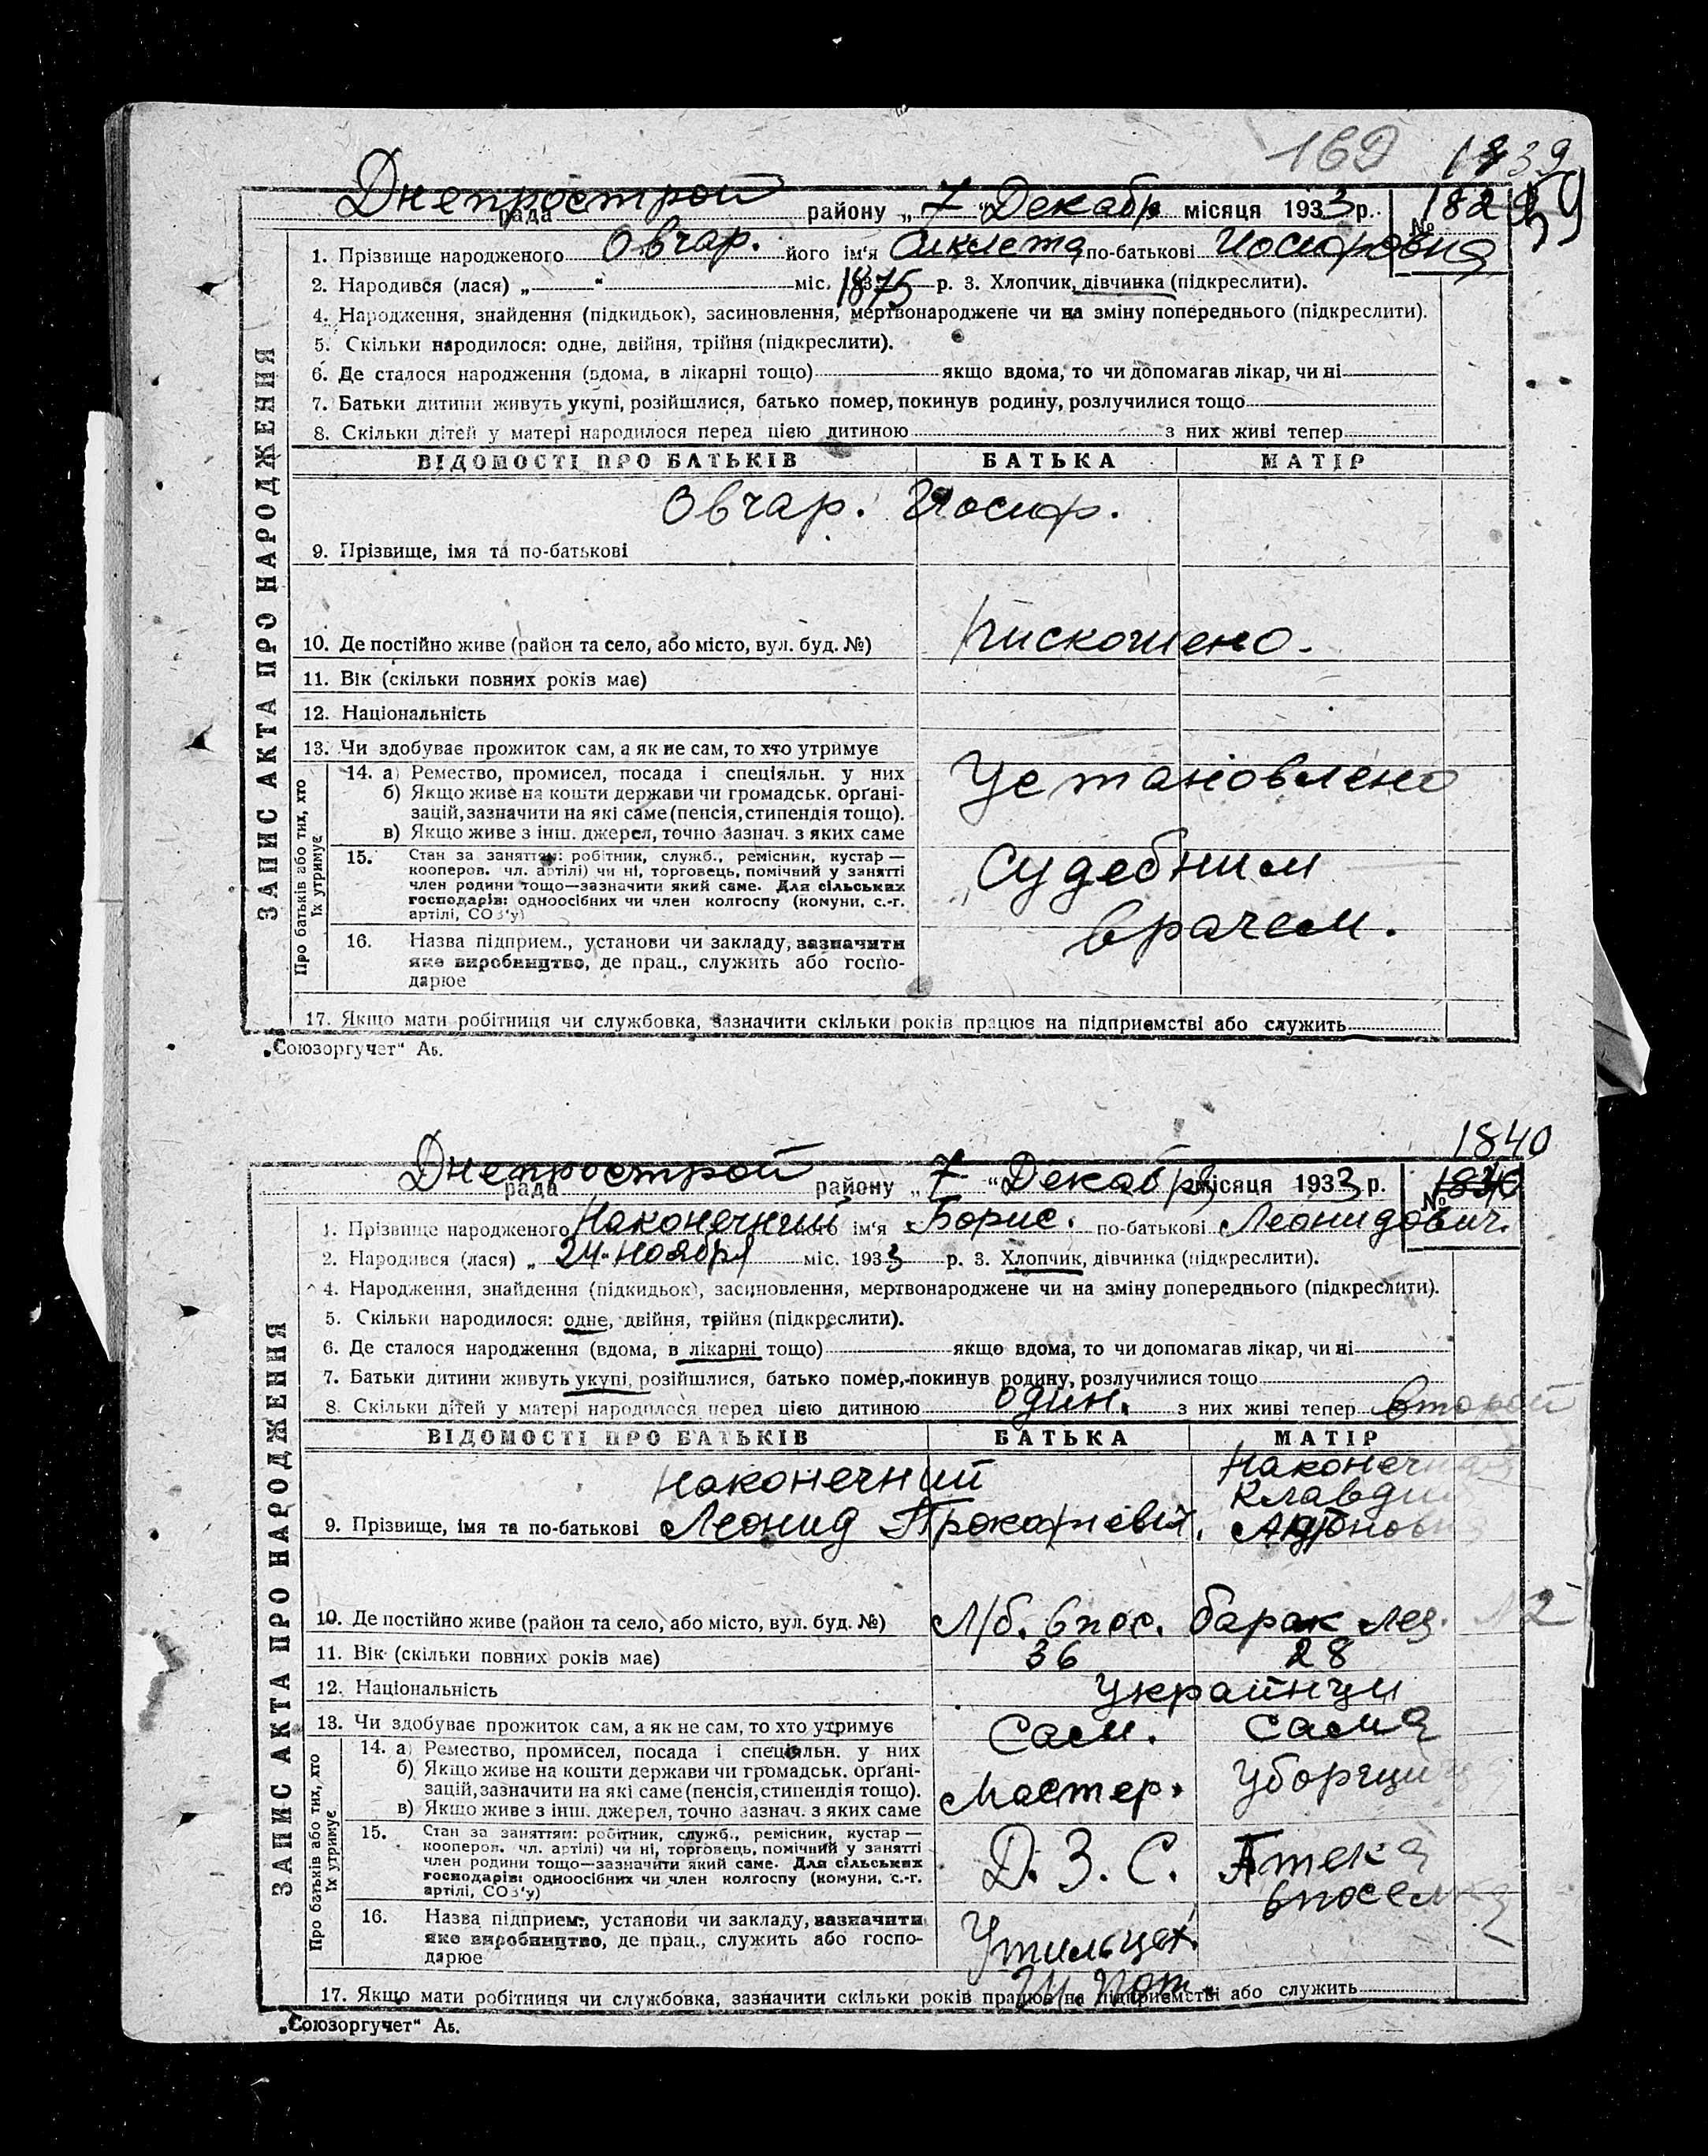 169 1839
Днепрострой
рада району „7“ Декабр місяця 1933 р. №
1. Прізвище народженого Овчар. його ім'я по-батькові Иосифовна
2. Народився (лася) „ “ міс. 1875 р. 3. Хлопчик, дівчинка (підкреслити).
4. Народження, знайдення (підкидьок), засиновлення, мертвонароджене чи на зміну попереднього (підкреслити).
5. Скільки народилося: одне, двійня, трійня (підкреслити).
6. Де сталося народження (вдома, в лікарні тощо) якщо вдома, то чи допомагав лікар, чи ні
7. Батьки дитини живуть укупі, розійшлися, батько помер, покинув родину, розлучилися тощо
8. Скільки дітей у матері народилося перед цією дитиною з них живі тепер
ЗАПИС АКТА ПРО НАРОДЖЕННЯ
ВІДОМОСТІ ПРО БАТЬКІВ БАТЬКА МАТІР
Овчар. Иосиф.
9. Прізвище, імя та по-батькові
10. Де постійно живе (район та село, або місто, вул. буд. №) Пискошено.
11. Вік (скільки повних років має)
12. Національність
13. Чи здобуває прожиток сам, а як не сам, то хто утримує
Про батьків або тих, хто їх утримує
14. а) Ремество, промисел, посада і спеціяльн. у них Установлено
б) Якщо живе на кошти держави чи громадськ. орґані-
зацій, зазначити на які саме (пенсія, стипендія тощо).
в) Якщо живе з інш. джерел, точно зазнач. з яких саме
15. Стан за заняттям: робітник, служб., ремісник, кустар — Судебним
кооперов. чл. артілі) чи ні, торговець, помічний у занятті
член родини тощо—зазначити який саме. Для сільських
господарів: одноосібних чи член колгоспу (комуни, с.-г.
артілі, СОЗ'у) врачем.
16. Назва підприєм., установи чи закладу, зазначити
яке виробництво, де прац., служить або госпо-
дарює
17. Якщо мати робітниця чи службовка, зазначити скільки років працює на підприємстві або служить
„Союзоргучет“ Аб.
1840
Днепрострой
рада району „7“ Декабря місяця 1933 р. № 1830
1. Прізвище народженого Наконечний його ім'я Борис. по-батькові Леонидович.
2. Народився (лася) „ 24 ноября міс. 1933 р. 3. Хлопчик, дівчинка (підкреслити).
4. Народження, знайдення (підкидьок), засиновлення, мертвонароджене чи на зміну попереднього (підкреслити).
5. Скільки народилося: одне, двійня, трійня (підкреслити).
6. Де сталося народження (вдома, в лікарні тощо) якщо вдома, то чи допомагав лікар, чи ні
7. Батьки дитини живуть укупі, розійшлися, батько помер, покинув родину, розлучилися тощо
8. Скільки дітей у матері народилося перед цією дитиною один. з них живі тепер второй
ЗАПИС АКТА ПРО НАРОДЖЕННЯ
ВІДОМОСТІ ПРО БАТЬКІВ БАТЬКА МАТІР
Наконечний Наконечная
Клавдия
9. Прізвище, імя та по-батькові Леонид
10. Де постійно живе (район та село, або місто, вул. буд. №) Л/б. 6 пос. барак 2
11. Вік (скільки повних років має) 36 28
12. Національність Украинци
13. Чи здобуває прожиток сам, а як не сам, то хто утримує Сам. Сама
Про батьків або тих, хто їх утримує
14. а) Ремество, промисел, посада і спеціяльн. у них Мастер. Уборщица
б) Якщо живе на кошти держави чи громадськ. орґані-
зацій, зазначити на які саме (пенсія, стипендія тощо).
в) Якщо живе з інш. джерел, точно зазнач. з яких саме
15. Стан за заняттям: робітник, служб., ремісник, кустар — Д. З. С. Аптека
кооперов. чл. артілі) чи ні, торговець, помічний у занятті
член родини тощо—зазначити який саме. Для сільських
господарів: одноосібних чи член колгоспу (комуни, с.-г.
артілі, СОЗ'у) 6 поселка
16. Назва підприєм., установи чи закладу, зазначити Утильцех
яке виробництво, де прац., служить або госпо-
дарює
17. Якщо мати робітниця чи службовка, зазначити скільки років працює на підприємстві або служить
„Союзоргучет“ Аб.